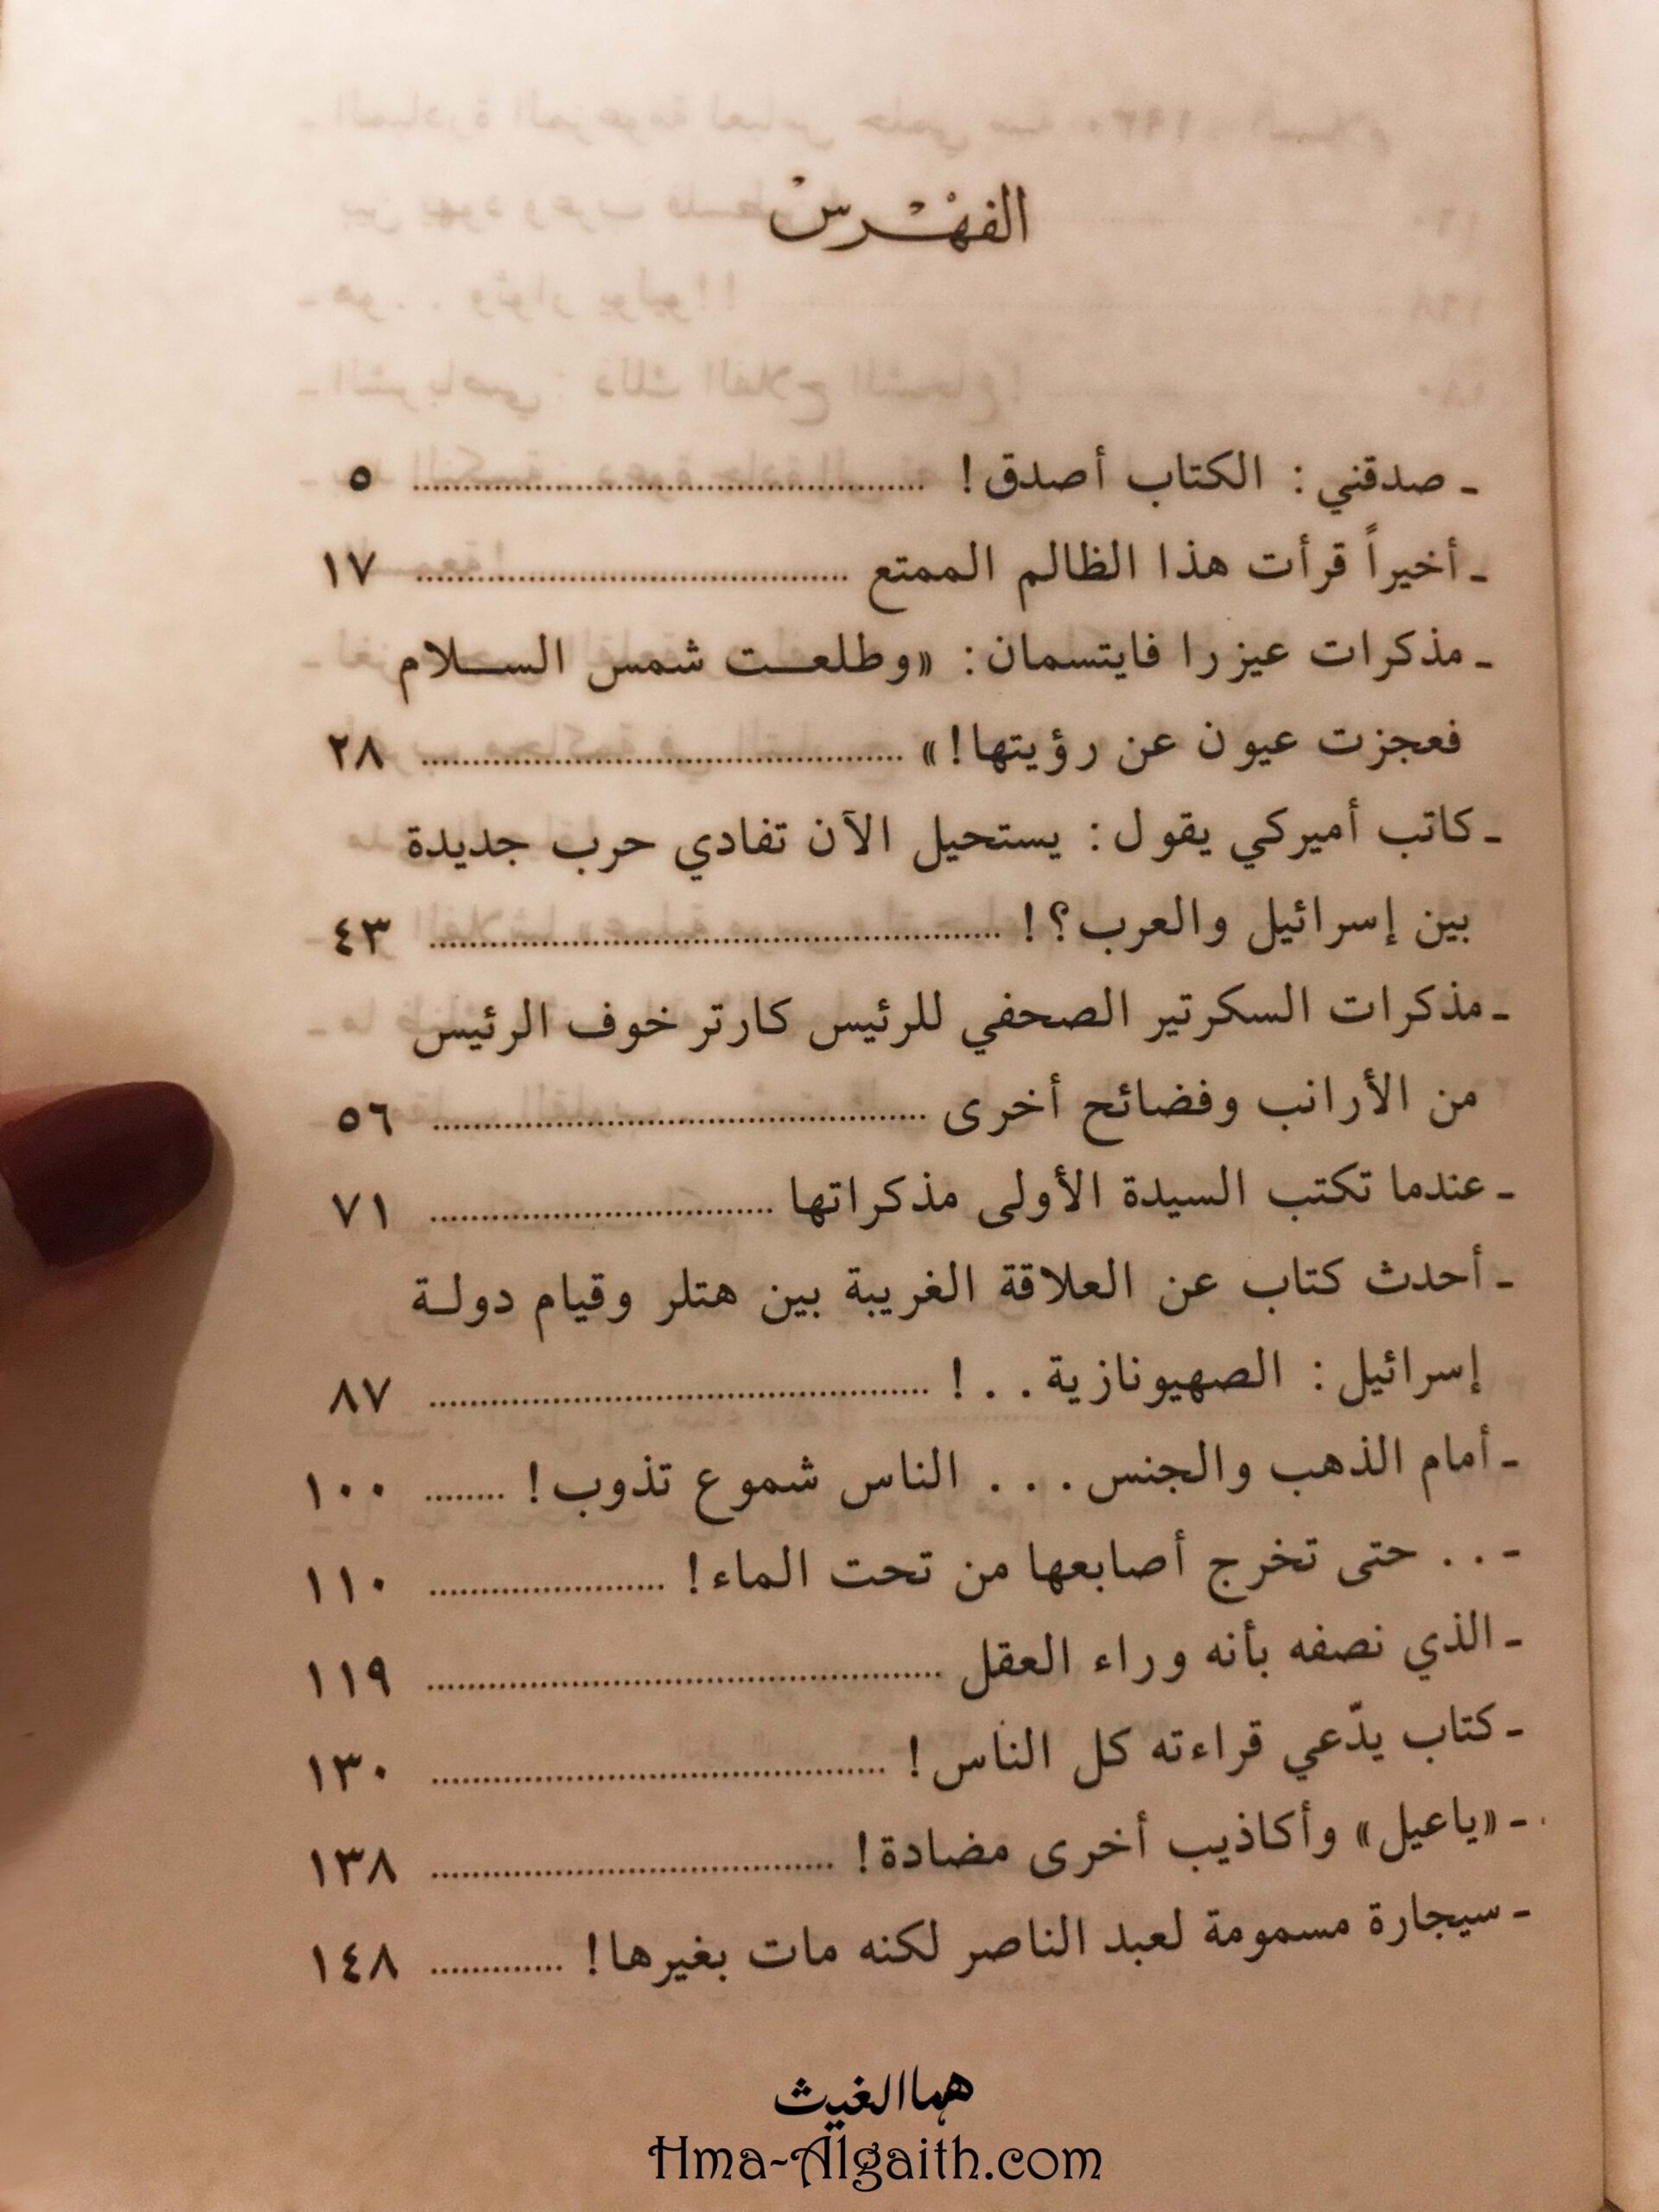 الفهرس
ـ صدقني : الكتاب أصدق ! ........ ٥
ـ أخيراً قرأت هذا الظالم الممتع ........ ١٧
ـ مذكرات عيزرا فايتسمان : «وطلعت شمس السلام
فعجزت عيون عن رؤيتها ! » ........ ٢٨
ـ كاتب أميركي يقول : يستحيل الآن تفادي حرب جديدة
بين إسرائيل والعرب ؟ ! ........ ٤٣
ـ مذكرات السكرتير الصحفي للرئيس كارتر خوف الرئيس
من الأرانب وفضائح أخرى ........ ٥٦
ـ عندما تكتب السيدة الأولى مذكراتها ........ ٧١
ـ أحدث كتاب عن العلاقة الغريبة بين هتلر وقيام دولة
إسرائيل : الصهيونازية . . ! ........ ٨٧
ـ أمام الذهب والجنس . . . الناس شموع تذوب ! ........ ١٠٠
ـ . . حتى تخرج أصابعها من تحت الماء ! ........ ١١٠
ـ الذي نصفه بأنه وراء العقل ........ ١١٩
ـ كتاب يدّعي قراءته كل الناس ! ........ ١٣٠
ـ «ياعيل» وأكاذيب أخرى مضادة ! ........ ١٣٨
ـ سيجارة مسمومة لعبد الناصر لكنه مات بغيرها ! ........ ١٤٨
هما الغيث
Hma-Algaith.com